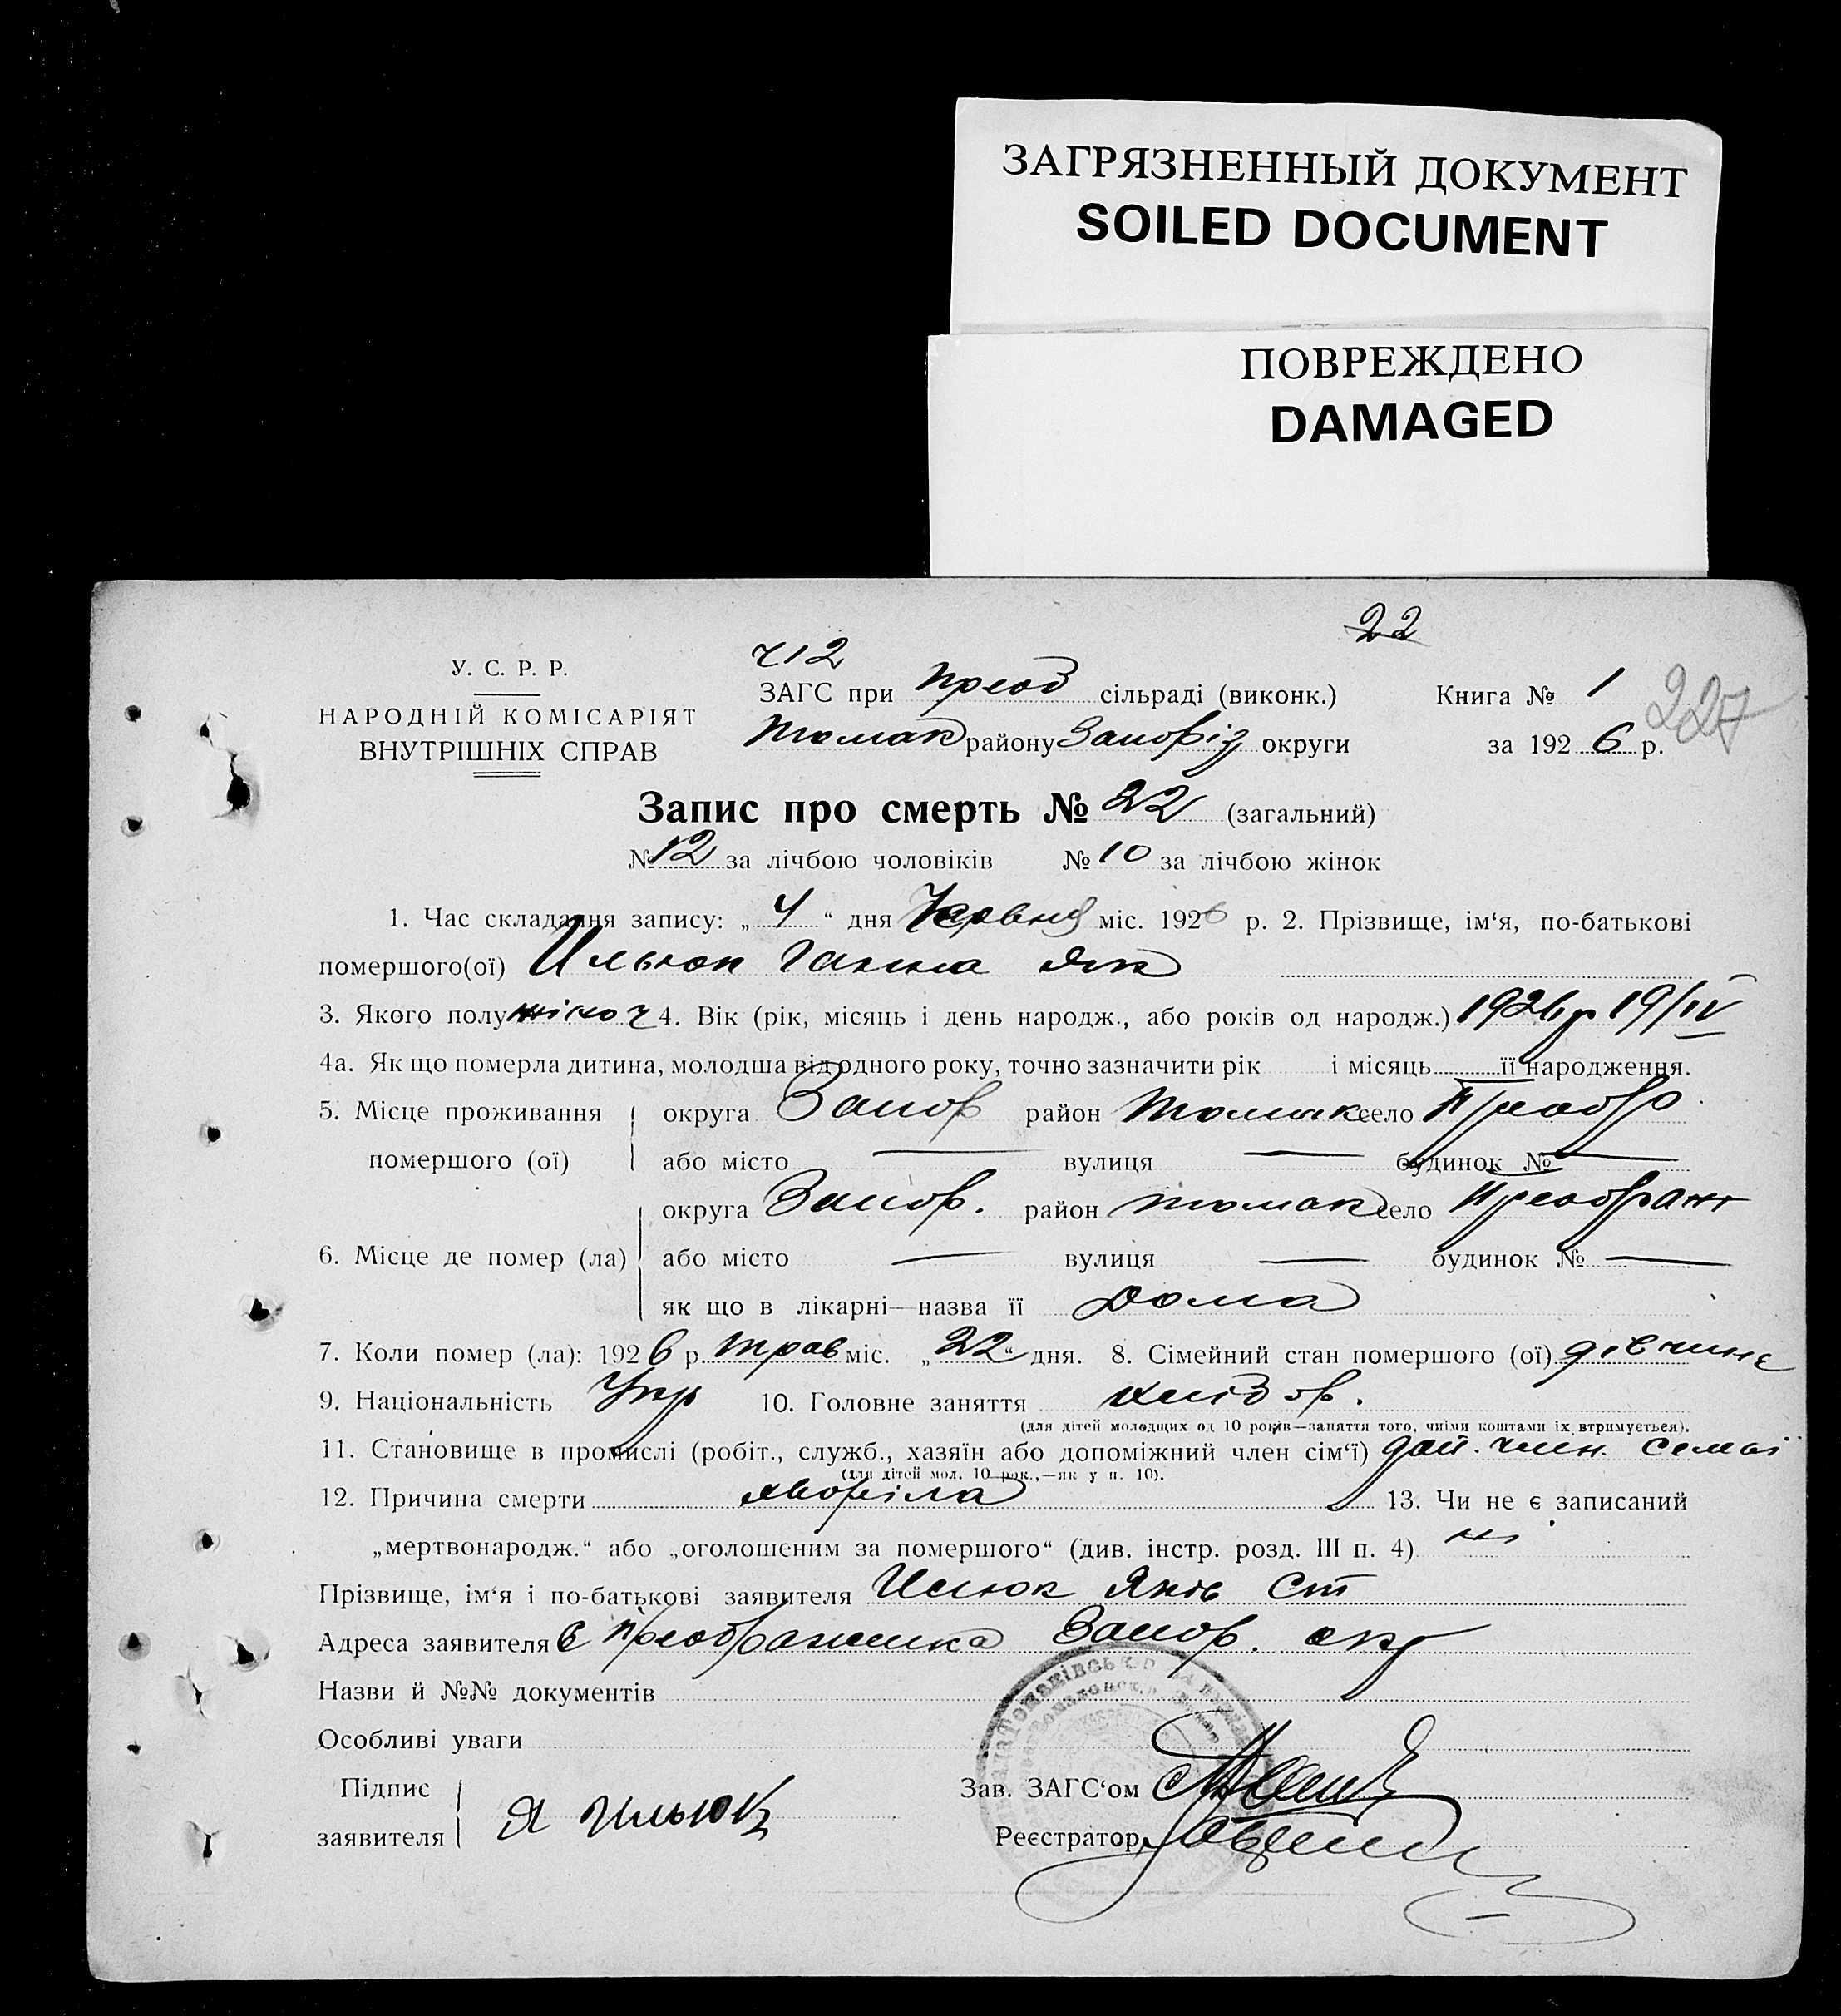 ЗАГРЯЗНЕННЫЙ ДОКУМЕНТ
SOILED DOCUMENT
ПОВРЕЖДЕНО
DAMAGED
22
У. С. Р. Р.
НАРОДНІЙ КОМІСАРІЯТ
ВНУТРІШНІХ СПРАВ
ч12
ЗАГС при Преоб сільраді (виконк.)
Токмак району Запоріз округи
Книга № 1
за 1926 р.
227
Запис про смерть № 22 (загальний)
№ 12 за лічбою чоловіків № 10 за лічбою жінок
1. Час складання запису: „ 4 “ дня Червня міс. 1926 р. 2. Прізвище, ім‘я, по-батькові
помершого(ої) Ильюк Ганна Як
3. Якого полу жіноч 4. Вік (рік, місяць і день народж., або років од народж.) 1926 р 19/IV
4а. Як що померла дитина, молодша від одного року, точно зазначити рік і місяць її народження.
5. Місце проживання помершого (ої)
округа Запор район Токмак село Преобр.
або місто — вулиця — будинок № —
6. Місце де помер (ла)
округа Запор. район Токмак село Преображ
або місто — вулиця — будинок № —
як що в лікарні—назва її Дома
7. Коли помер (ла): 1926 р. трав міс. „22“ дня. 8. Сімейний стан помершого (ої) дівчина
9. Національність Укр 10. Головне заняття хлібор.
(для дітей молодщих од 10 років—заняття того, чиїми коштами їх втримується).
11. Становище в промислі (робіт., служб., хазяїн або допоміжний член сім‘ї) доп. член. семьі
(для дітей мол. 10 рок.,—як у п. 10).
12. Причина смерти хворіла 13. Чи не є записаний
„мертвонародж.“ або „оголошеним за помершого“ (див. інстр. розд. III п. 4) ні
Прізвище, ім‘я і по-батькові заявителя Илюк Яків Ст
Адреса заявителя с Преображенка Запор. окр
Назви й №№ документів
Особливі уваги
Підпис заявителя Я Ильюк
Зав. ЗАГС‘ом
Реєстратор